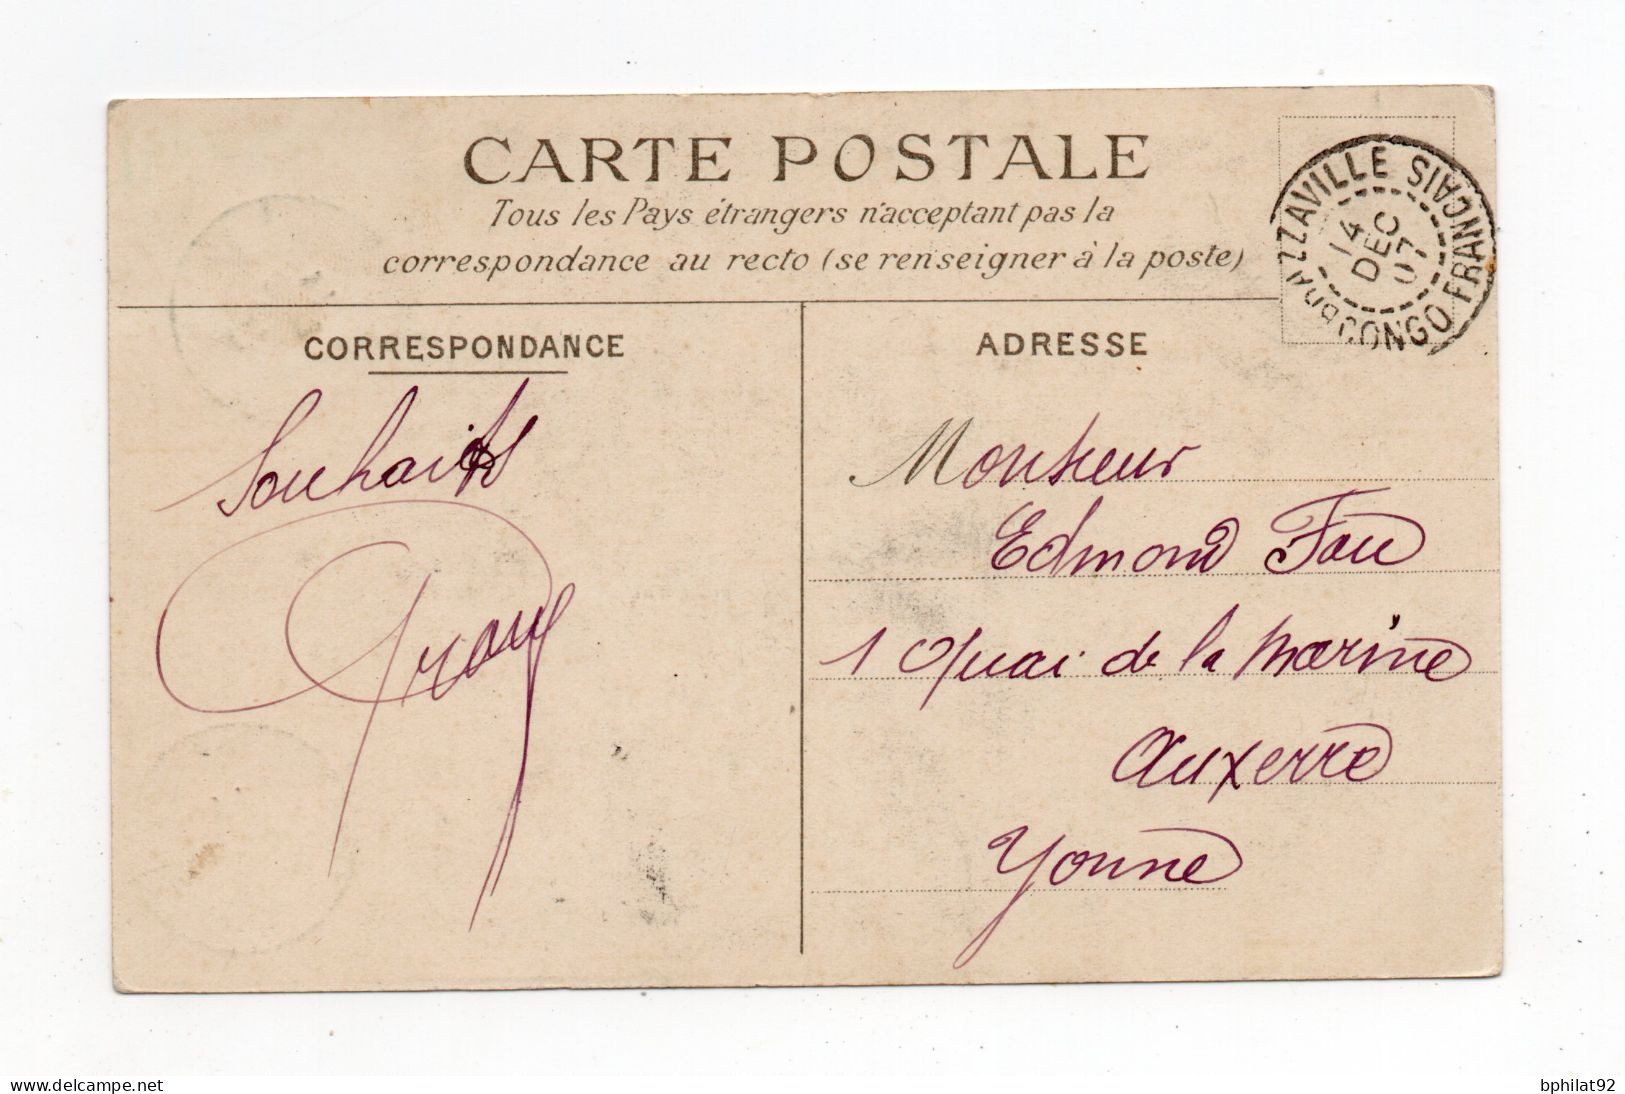 CARTE POSTALE
Tous les Pays étrangers n'acceptant pas la
correspondance au recto (se renseigner à la poste)
BRAZZAVILLE
CONGO FRANCAIS
14
DEC
07
CORRESPONDANCE
Souhaits
ADRESSE
Monsieur
Edmond Fau
1 Quai de la Marine
Auxerre
Yonne
www.delcampe.net
bphilat92